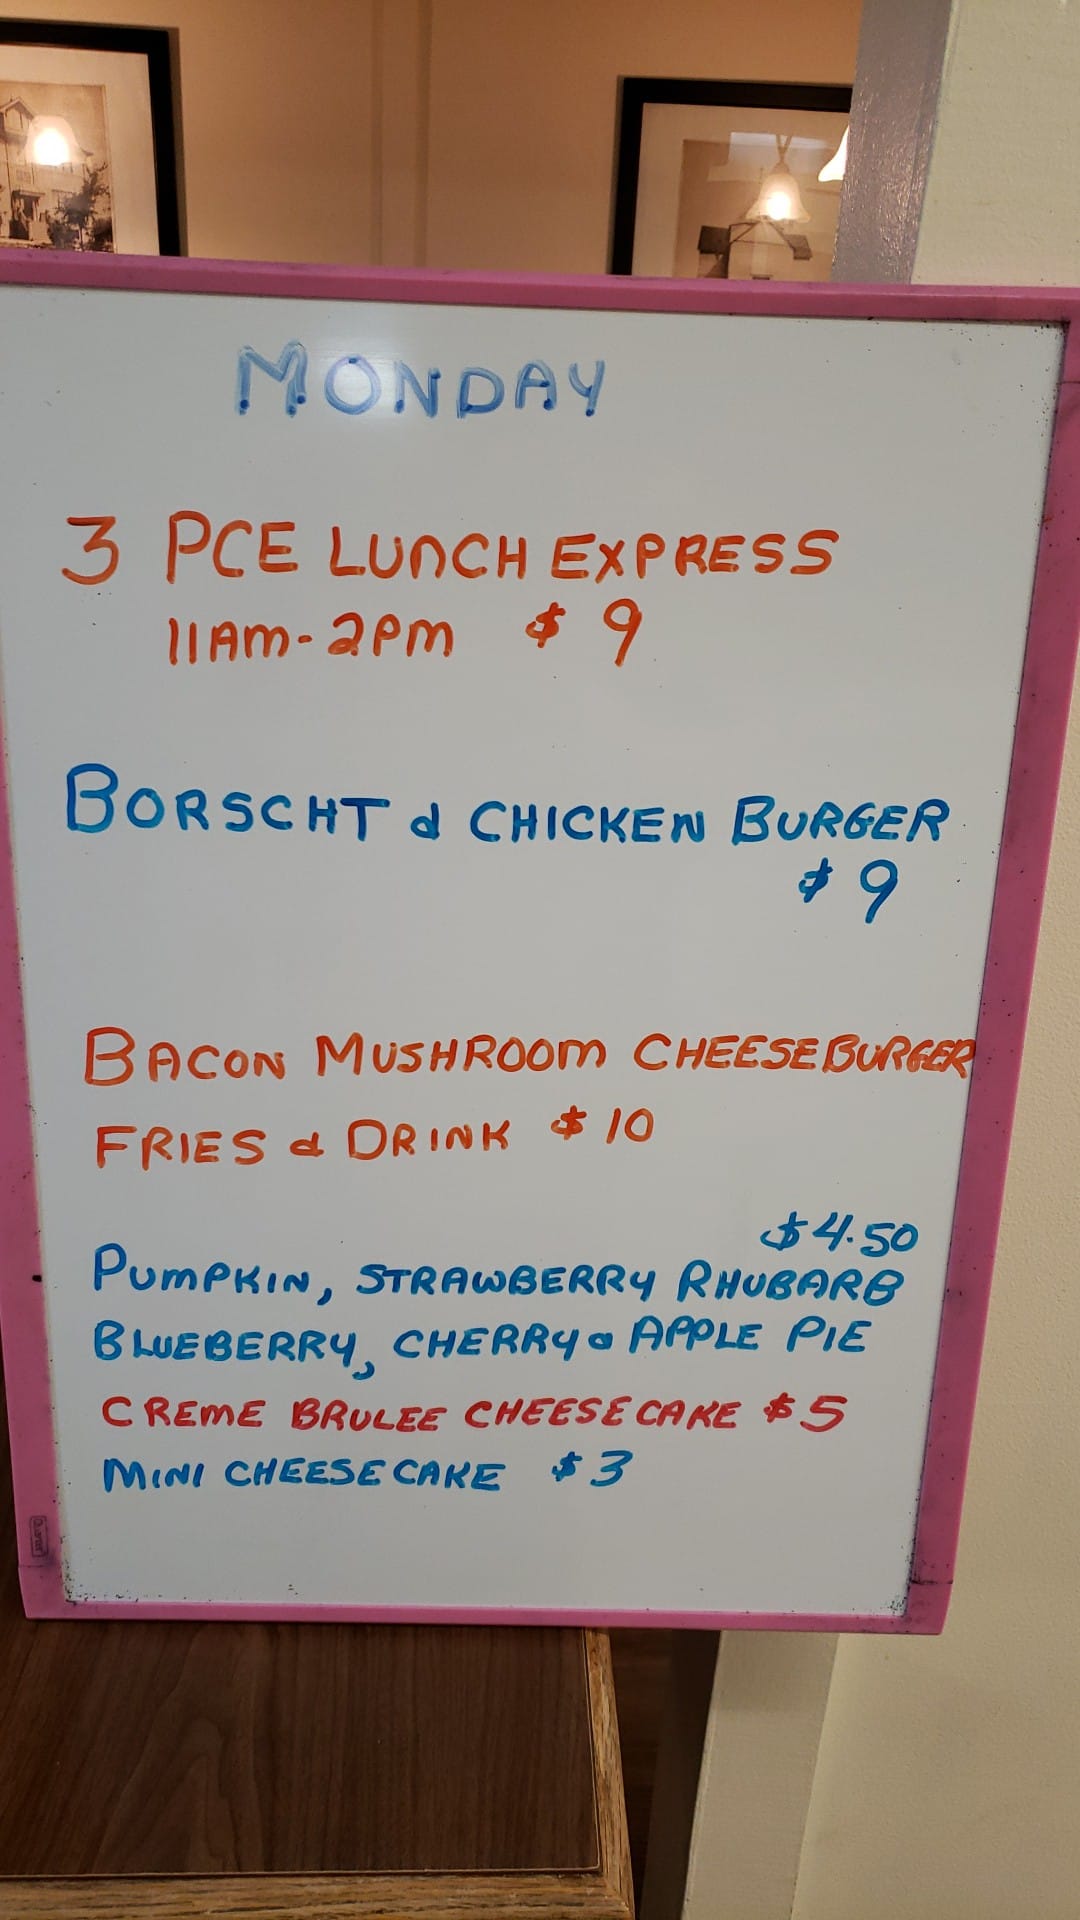 MONDAY
3 PCE LUNCH EXPRESS
11AM-2PM $9
BORSCHT & CHICKEN BURGER
$9
BACON MUSHROOM CHEESEBURGER
FRIES & DRINK $10
$4.50
PUMPKIN, STRAWBERRY RHUBARB
BLUEBERRY, CHERRY & APPLE PIE
CREME BRULEE CHEESECAKE $5
MINI CHEESECAKE $3